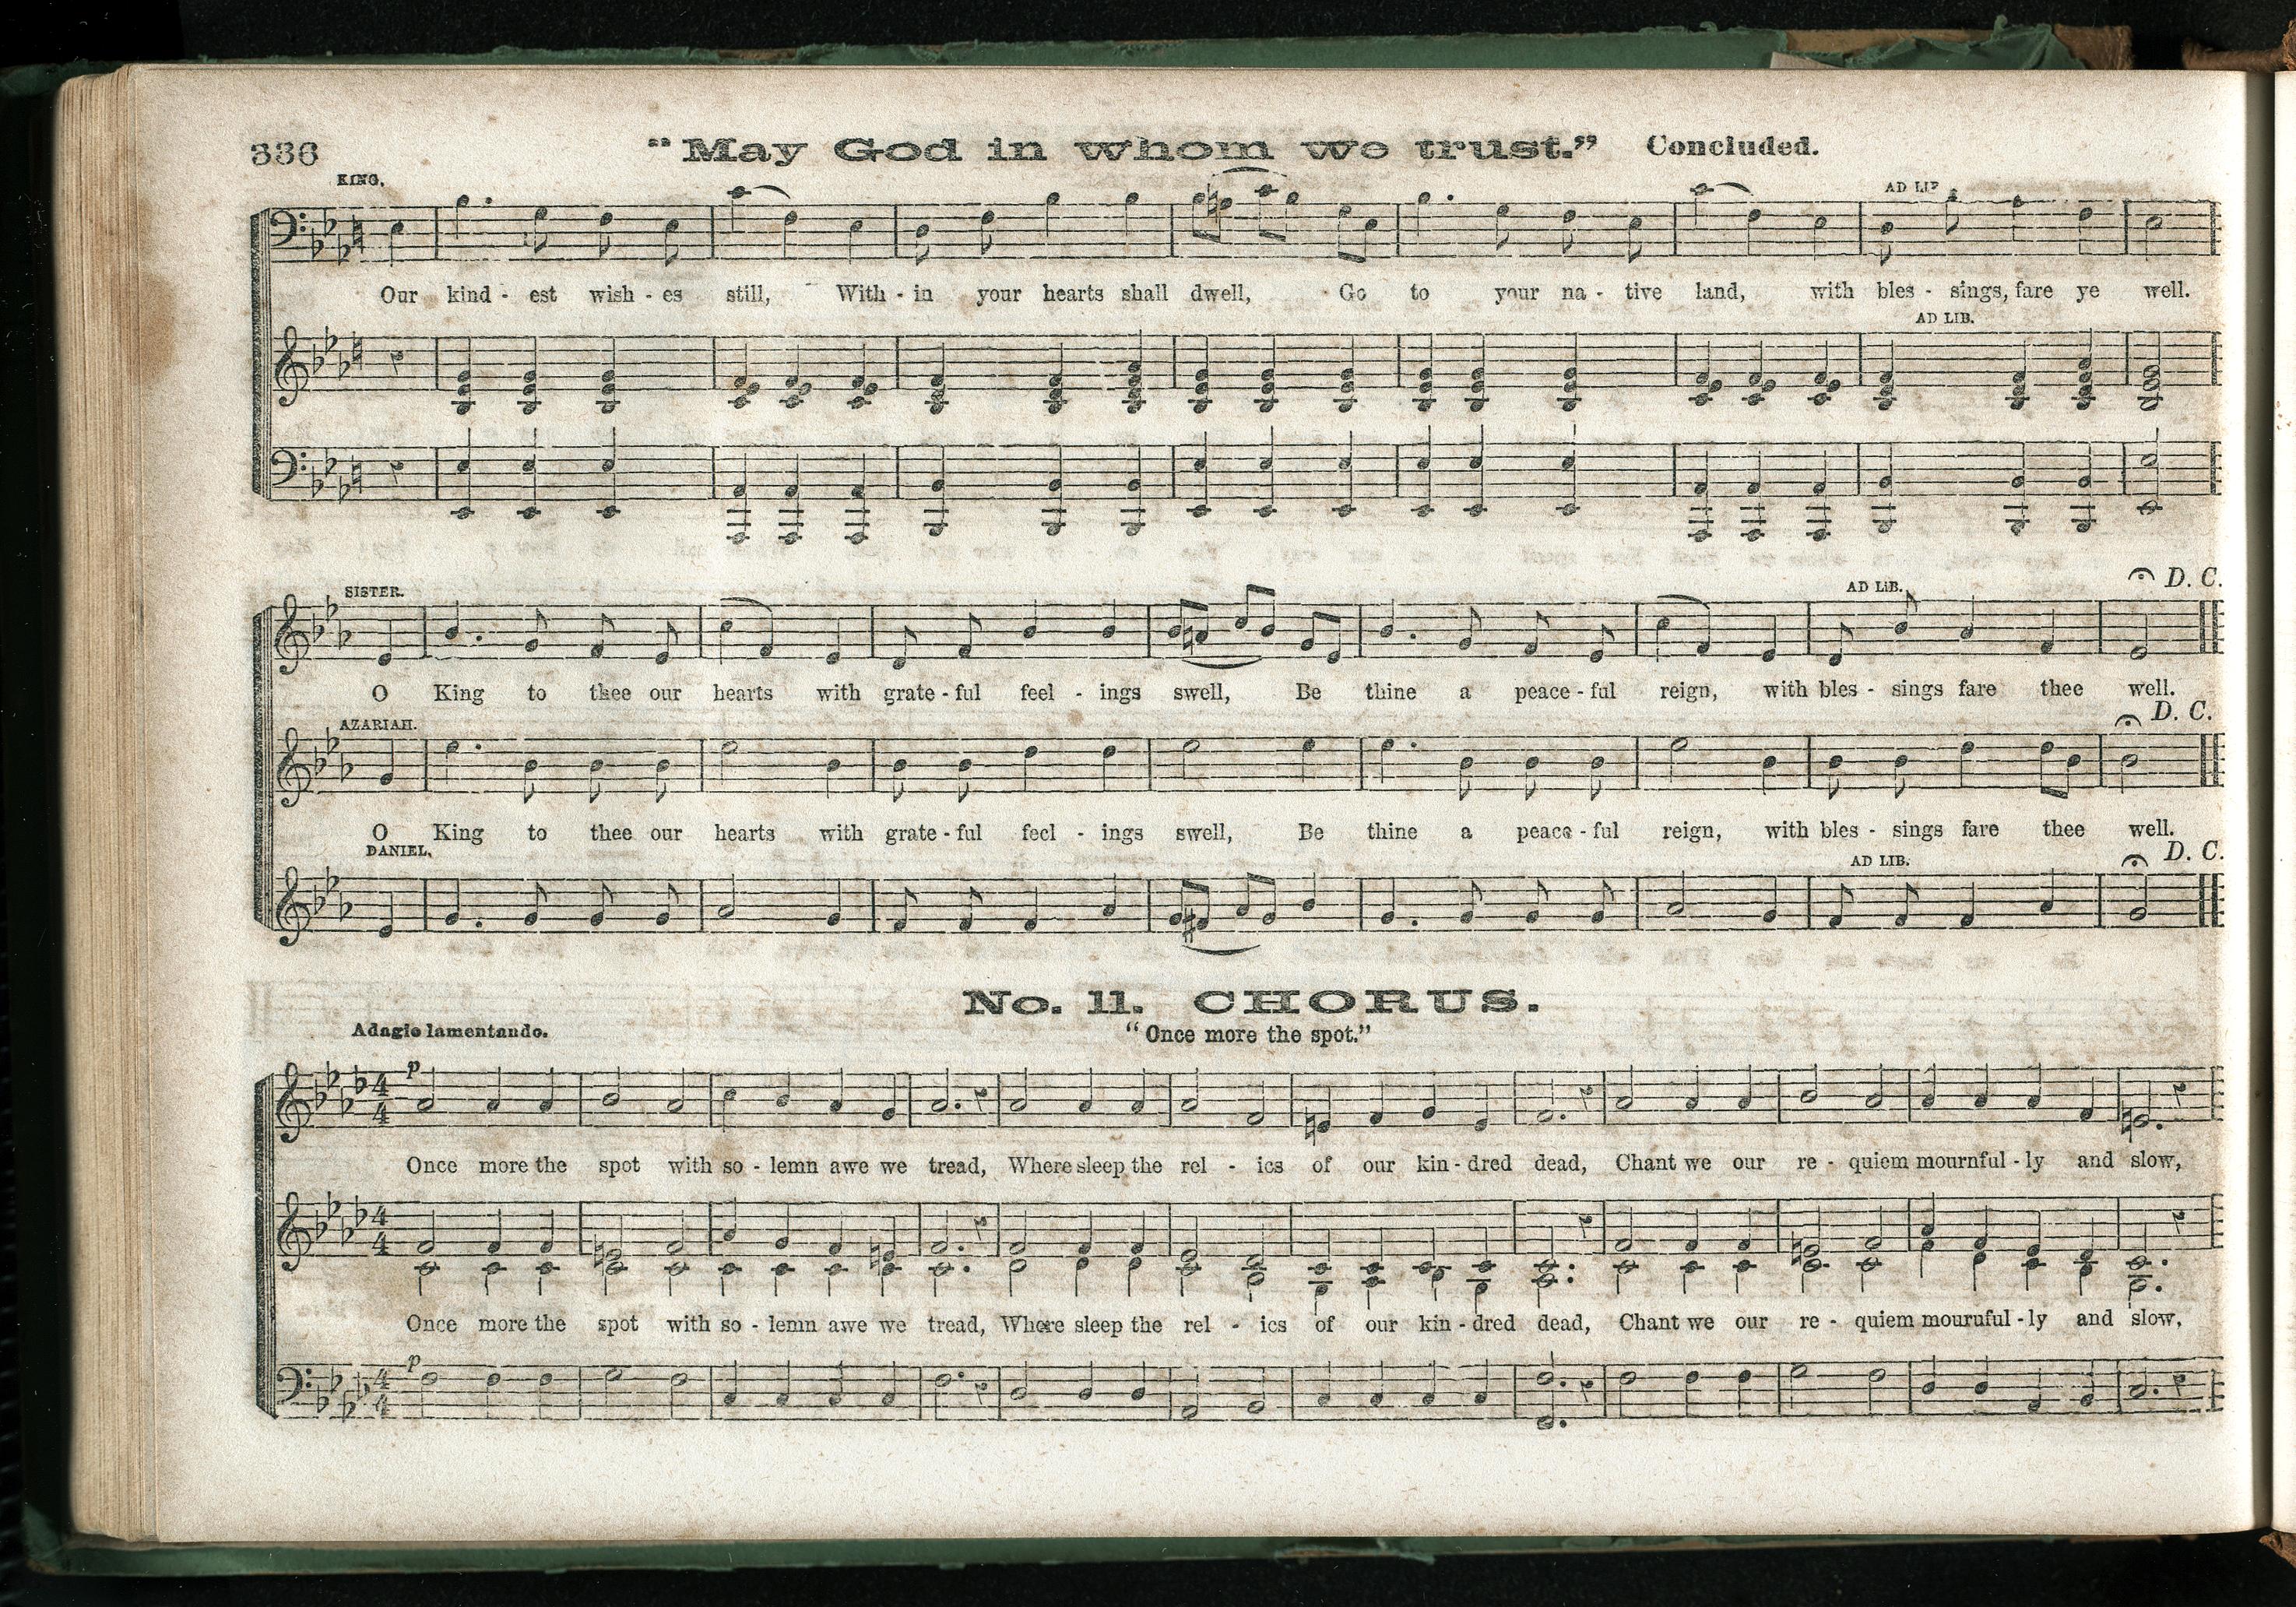 336
"May God in whom we trust." Concluded.
KING.
AD LIB.
Our kind - est wish - es still, With - in your hearts shall dwell, Go to your na - tive land, with bles - sings, fare ye well.
AD LIB.
SISTER.
AD LIB.
D. C.
O King to thee our hearts with grate - ful feel - ings swell, Be thine a peace - ful reign, with bles - sings fare thee well.
AZARIAH.
D. C.
O King to thee our hearts with grate - ful feel - ings swell, Be thine a peace - ful reign, with bles - sings fare thee well.
DANIEL.
AD LIB.
D. C.
No. 11. CHORUS.
Adagio lamentando.
"Once more the spot."
p
4
4
Once more the spot with so - lemn awe we tread, Where sleep the rel - ics of our kin - dred dead, Chant we our re - quiem mournful - ly and slow,
4
4
Once more the spot with so - lemn awe we tread, Where sleep the rel - ics of our kin - dred dead, Chant we our re - quiem mournful - ly and slow,
p
4
4